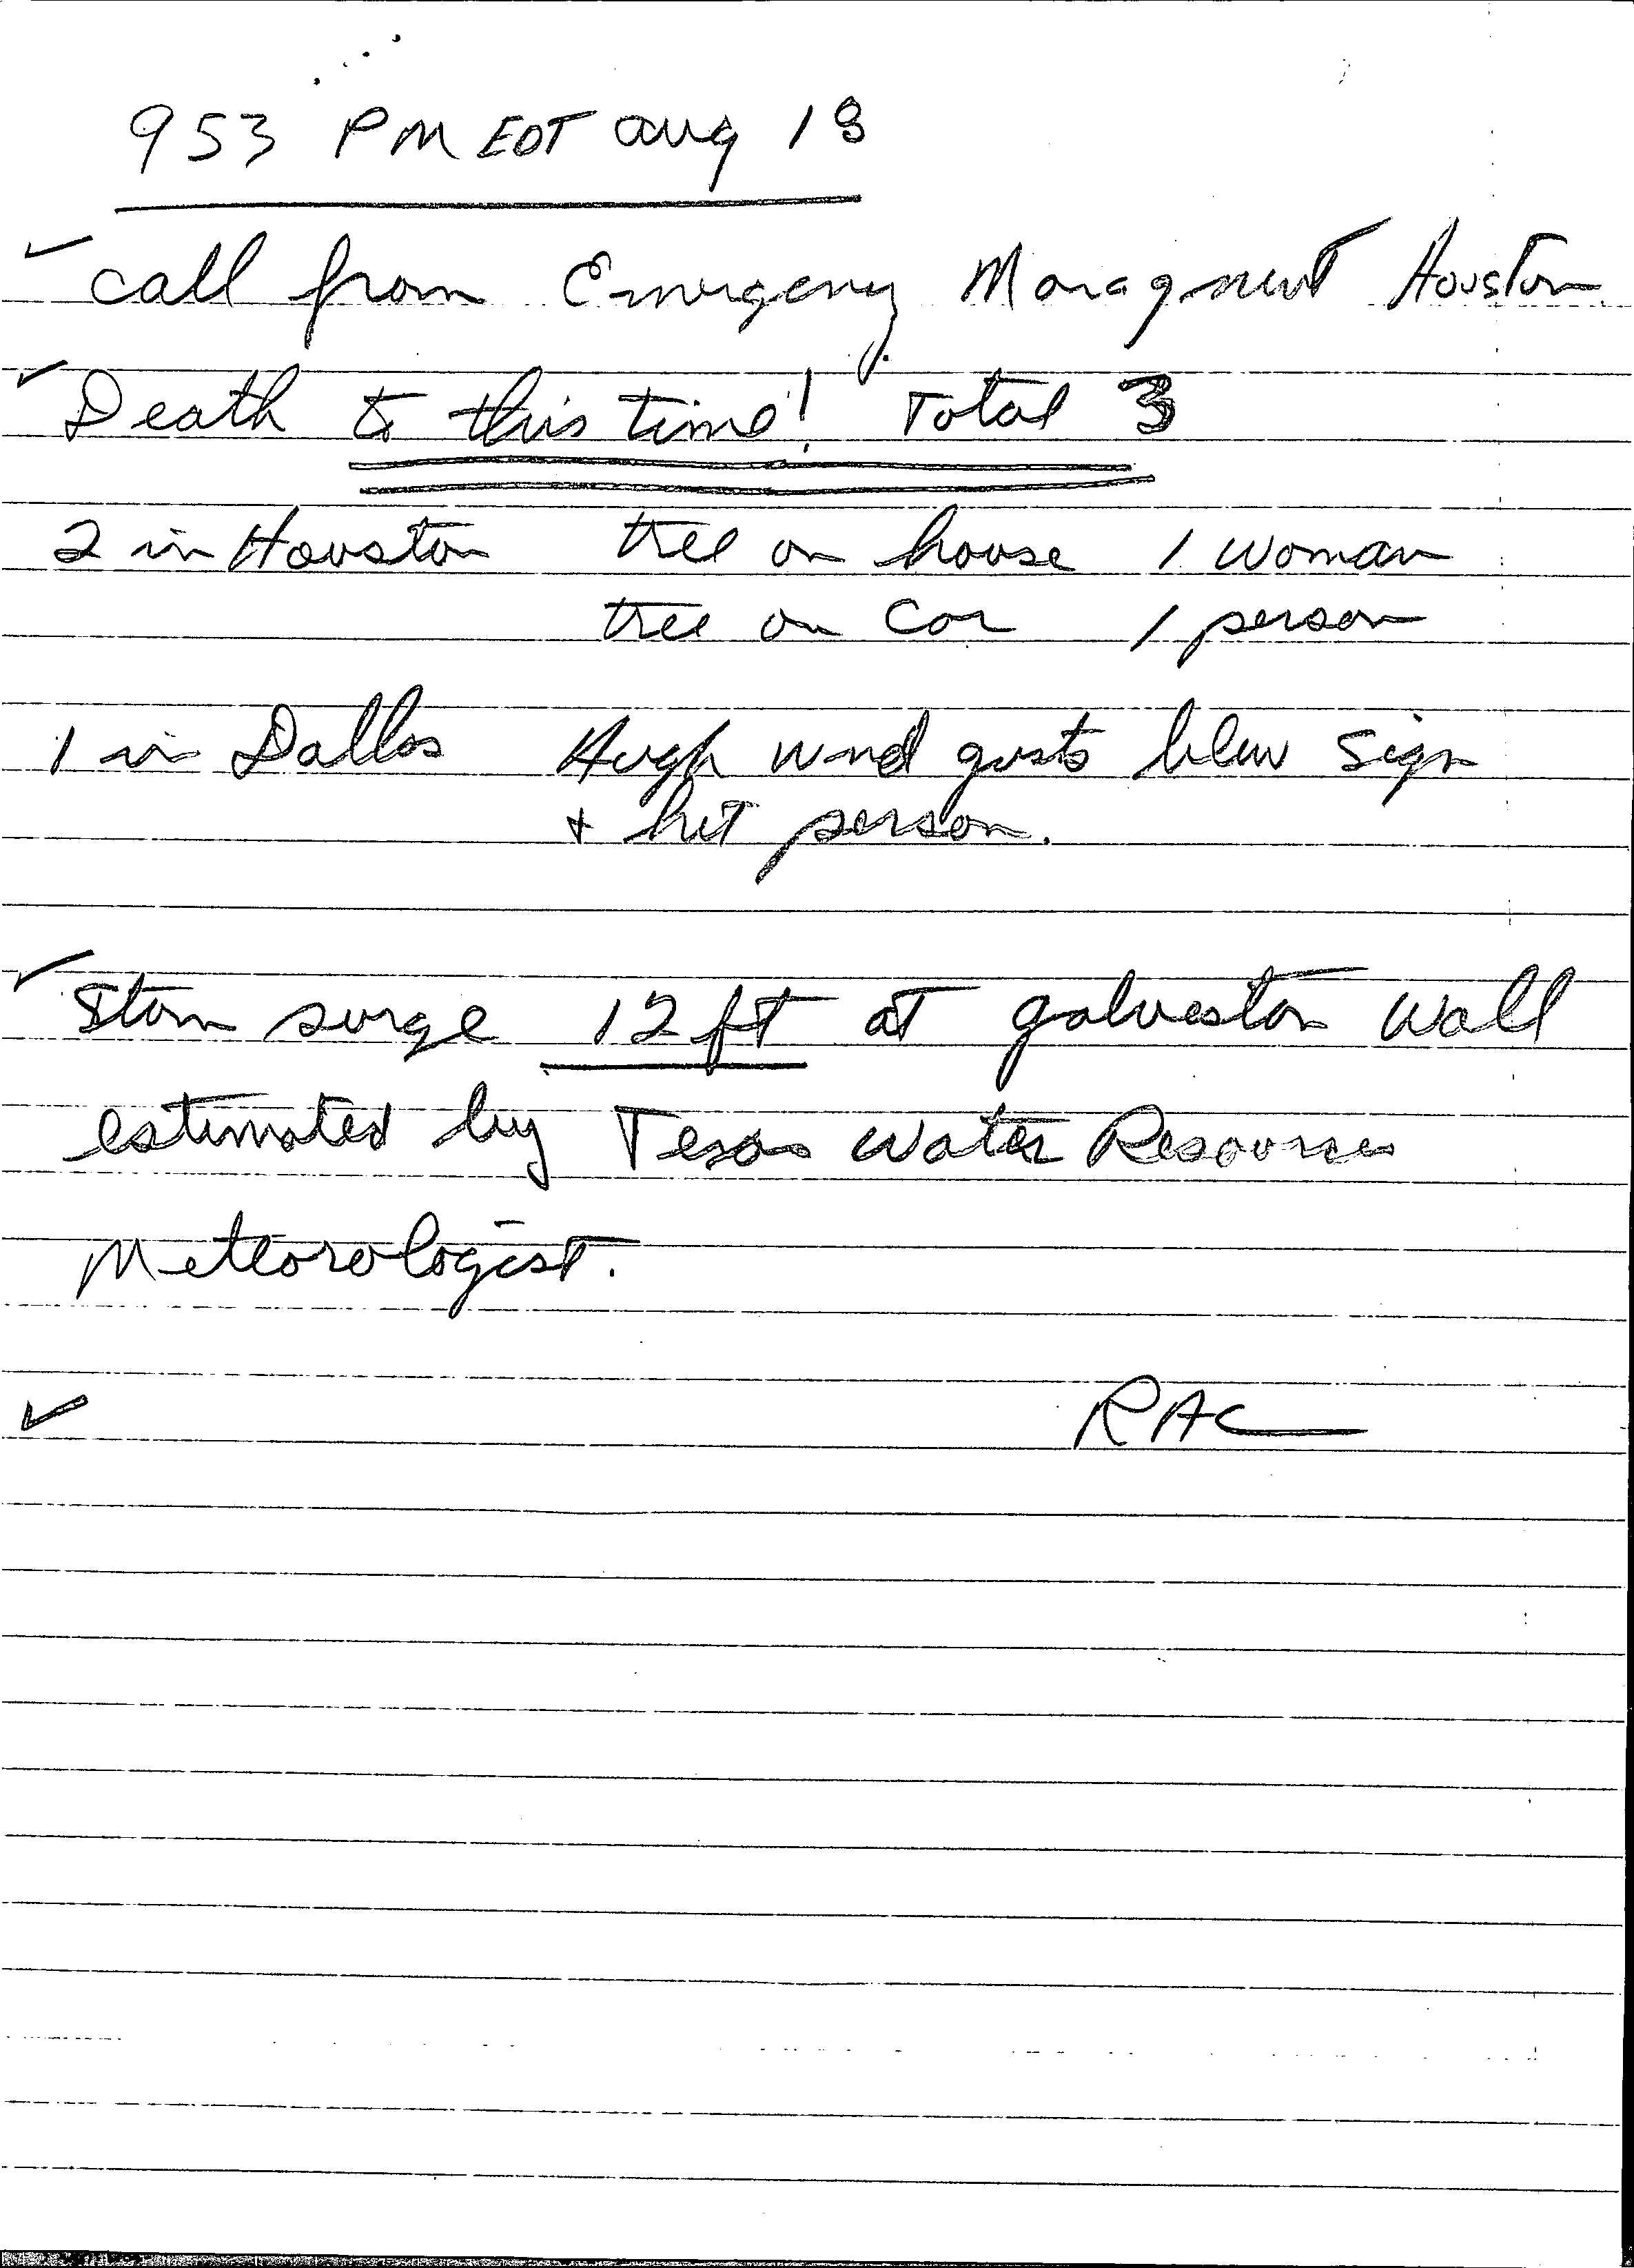 953 PM EDT Aug 18
✓ call from Emergency Managment Houston
✓ Death to this time! Total 3
2 in Houston tree on house 1 woman
tree on car 1 person
1 in Dallas High wind gusts blew sign
+ hit person.
✓ Storm surge 12 ft at galveston wall
estimated by Texas Water Resources
Meteorologist.
✓ RAC